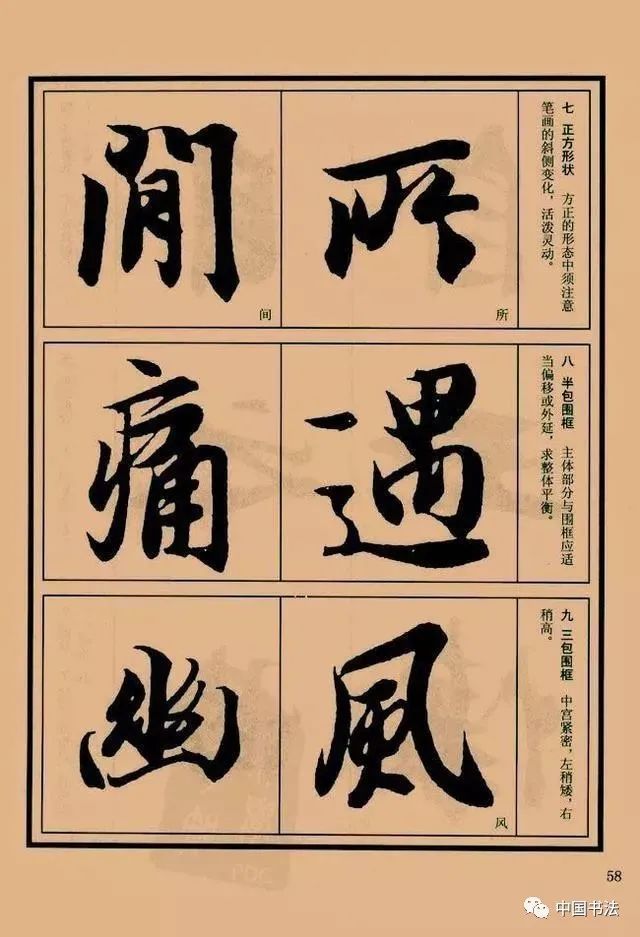 七 正方形状 方正的形态中须注意
笔画的斜侧变化，活泼灵动。
所
所
閒
间
八 半包围框 主体部分与围框应适
当偏移或外延，求整体平衡。
遇
痛
九 三包围框 中宫紧密，左稍矮，右
稍高。
風
风
幽
58
中国书法